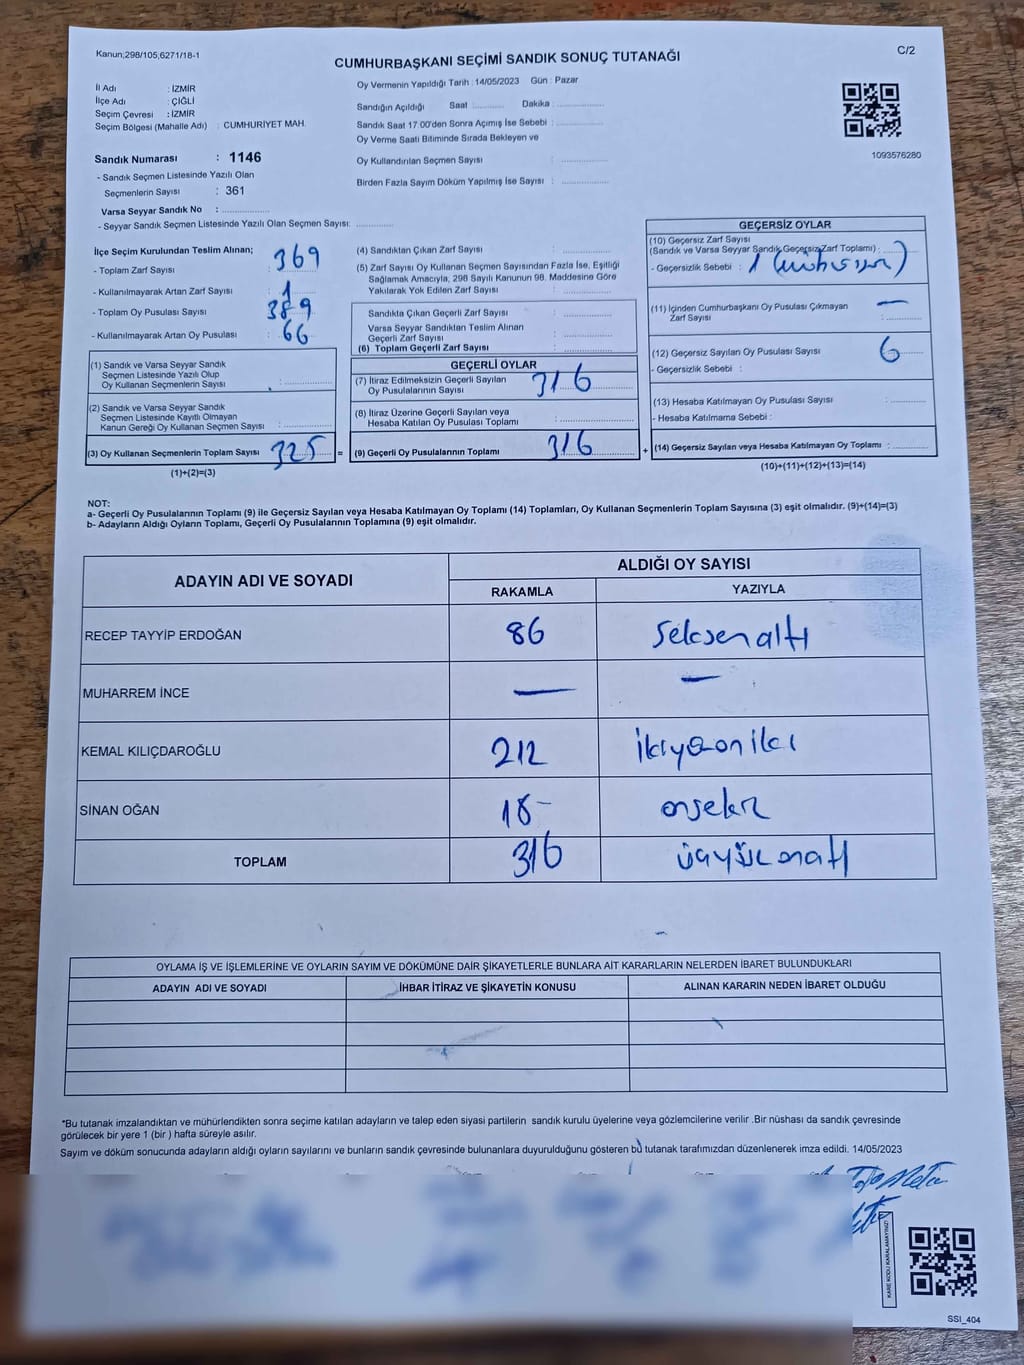 Kanun;298/105;6271/18-1
C/2
CUMHURBAŞKANI SEÇİMİ SANDIK SONUÇ TUTANAĞI
İl Adı : İZMİR
İlçe Adı : ÇİĞLİ
Seçim Çevresi : İZMİR
Seçim Bölgesi (Mahalle Adı) : CUMHURİYET MAH.
Sandık Numarası : 1146
- Sandık Seçmen Listesinde Yazılı Olan
Seçmenlerin Sayısı : 361
Varsa Seyyar Sandık No :
- Seyyar Sandık Seçmen Listesinde Yazılı Olan Seçmen Sayısı:
Oy Vermenin Yapıldığı Tarih : 14/05/2023 Gün : Pazar
Sandığın Açıldığı Saat Dakika :
Sandık Saat 17.00'den Sonra Açımış İse Sebebi :
Oy Verme Saati Bitiminde Sırada Bekleyen ve
Oy Kullandırılan Seçmen Sayısı :
Birden Fazla Sayım Döküm Yapılmış İse Sayısı :
1093576280
İlçe Seçim Kurulundan Teslim Alınan;
- Toplam Zarf Sayısı : 369
- Kullanılmayarak Artan Zarf Sayısı : 1
- Toplam Oy Pusulası Sayısı : 389
- Kullanılmayarak Artan Oy Pusulası : 66
(1) Sandık ve Varsa Seyyar Sandık
Seçmen Listesinde Yazılı Olup
Oy Kullanan Seçmenlerin Sayısı :
(2) Sandık ve Varsa Seyyar Sandık
Seçmen Listesinde Kayıtlı Olmayan
Kanun Gereği Oy Kullanan Seçmen Sayısı :
(3) Oy Kullanan Seçmenlerin Toplam Sayısı 325 =
(1)+(2)=(3)
(4) Sandıktan Çıkan Zarf Sayısı :
(5) Zarf Sayısı Oy Kullanan Seçmen Sayısından Fazla İse, Eşitliği
Sağlamak Amacıyla, 298 Sayılı Kanunun 98. Maddesine Göre
Yakılarak Yok Edilen Zarf Sayısı :
Sandıkta Çıkan Geçerli Zarf Sayısı :
Varsa Seyyar Sandıktan Teslim Alınan
Geçerli Zarf Sayısı :
(6) Toplam Geçerli Zarf Sayısı :
GEÇERLİ OYLAR
(7) İtiraz Edilmeksizin Geçerli Sayılan
Oy Pusulalarının Sayısı : 316
(8) İtiraz Üzerine Geçerli Sayılan veya
Hesaba Katılan Oy Pusulası Toplamı :
(9) Geçerli Oy Pusulalarının Toplamı 316 +
GEÇERSİZ OYLAR
(10) Geçersiz Zarf Sayısı
(Sandık ve Varsa Seyyar Sandık Geçersiz Zarf Toplamı) :
- Geçersizlik Sebebi : 1
(11) İçinden Cumhurbaşkanı Oy Pusulası Çıkmayan
Zarf Sayısı : —
(12) Geçersiz Sayılan Oy Pusulası Sayısı : 6
- Geçersizlik Sebebi :
(13) Hesaba Katılmayan Oy Pusulası Sayısı :
- Hesaba Katılmama Sebebi :
(14) Geçersiz Sayılan veya Hesaba Katılmayan Oy Toplamı :
(10)+(11)+(12)+(13)=(14)
NOT:
a- Geçerli Oy Pusulalarının Toplamı (9) ile Geçersiz Sayılan veya Hesaba Katılmayan Oy Toplamı (14) Toplamları, Oy Kullanan Seçmenlerin Toplam Sayısına (3) eşit olmalıdır. (9)+(14)=(3)
b- Adayların Aldığı Oyların Toplamı, Geçerli Oy Pusulalarının Toplamına (9) eşit olmalıdır.
ADAYIN ADI VE SOYADI
ALDIĞI OY SAYISI
RAKAMLA YAZIYLA
RECEP TAYYİP ERDOĞAN 86 Seksenaltı
MUHARREM İNCE — —
KEMAL KILIÇDAROĞLU 212 ikiyüzoniki
SİNAN OĞAN 18- onsekiz
TOPLAM 316 üçyüzonaltı
OYLAMA İŞ VE İŞLEMLERİNE VE OYLARIN SAYIM VE DÖKÜMÜNE DAİR ŞİKAYETLERLE BUNLARA AİT KARARLARIN NELERDEN İBARET BULUNDUKLARI
ADAYIN ADI VE SOYADI İHBAR İTİRAZ VE ŞİKAYETİN KONUSU ALINAN KARARIN NEDEN İBARET OLDUĞU
*Bu tutanak imzalandıktan ve mühürlendikten sonra seçime katılan adayların ve talep eden siyasi partilerin sandık kurulu üyelerine veya gözlemcilerine verilir .Bir nüshası da sandık çevresinde
görülecek bir yere 1 (bir ) hafta süreyle asılır.
Sayım ve döküm sonucunda adayların aldığı oyların sayılarını ve bunların sandık çevresinde bulunanlara duyurulduğunu gösteren bu tutanak tarafımızdan düzenlenerek imza edildi. 14/05/2023
KARE KODU KARALAMAYINIZ!
SSI_404